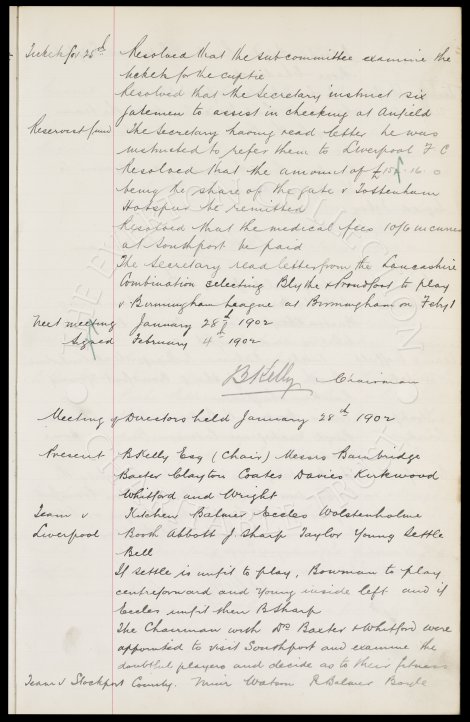 Tickets for 25th Resolved that the subcommittee examine the
tickets for the cuptie
Resolved that the Secretary instruct six
gatemen to assist in checking at Anfield
Reservest fund The Secretary having read letter he was
instructed to refer them to Liverpool F C
Resolved that the amount of £15 . 16 . 0
being the share of the gate v Tottenham
Hotspur be remitted
Resolved that the medical fees 10/6 incurred
at Southport be paid
The Secretary read letter from the Lancashire
Combination selecting Blythe & Proudfoot to play
v Birmingham League at Birmingham on Feby 1
Next meeting January 28th 1902
Agreed February 4th 1902
B Kelly Chairman
Meeting of Directors held January 28th 1902
Present B Kelly Esq (Chair) Messrs Bainbridge
Baxter Clayton Coates Davies Kirkwood
Whitford and Wright
Team v Kitchen Balmer Eccles Wolstenholme
Liverpool Booth Abbott J. Sharp Taylor Young Settle
Bell
If Settle is unfit to play, Bowman to play
centreforward and Young inside left and if
Eccles unfit then B Sharp
The Chairman with Drs Baxter & Whitford were
appointed to visit Southport and examine the
doubtful players and decide as to their fitness
Team v Stockport County. Muir Watson R Balmer Boyle